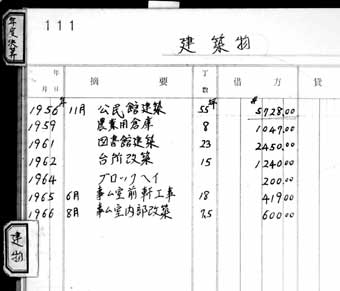 年度決算
111
建築物
年 月 日 摘要 丁数 借方 貸
1956年 11月 公民館建築 55年 $5728.00
1959 農業用倉庫 8 1047.00
1961 図書館建築 23 2450.00
1962 台所改築 15 1240.00
1964 ブロックヘイ 200.00
1965 6月 事ム室前軒工事 18 419.00
1966 8月 事ム室内部改築 7.5 600.00
建物